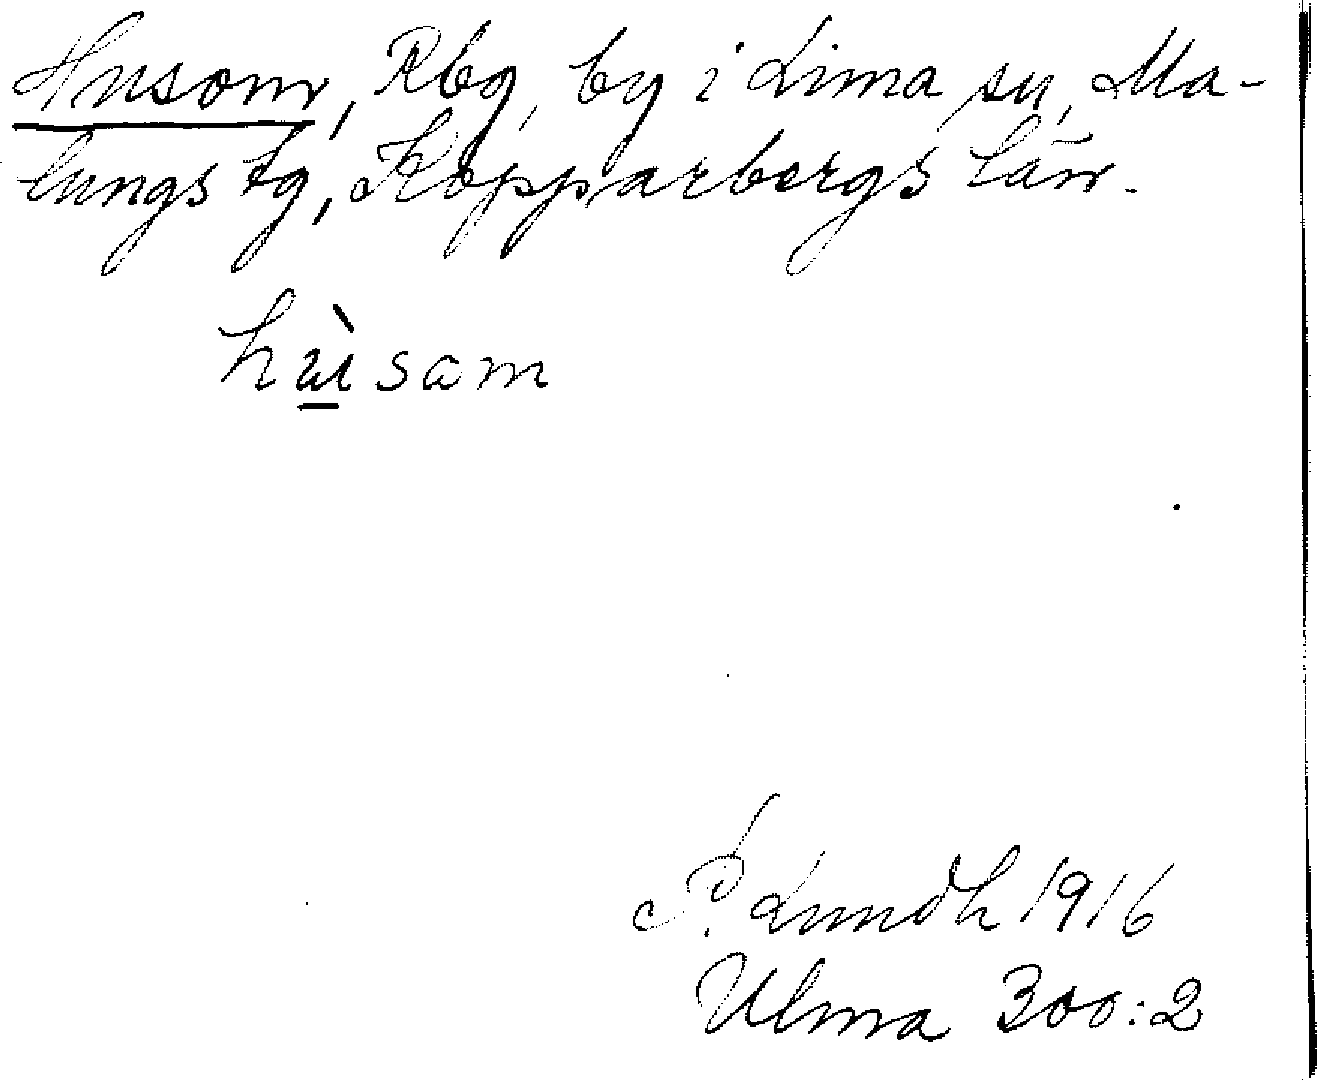 Husom, Rbg, by i Lima sn, Ma-
lungs tg, Kopparbergs län.
hùsam
P. Lundh 1916
Ulma 300:2